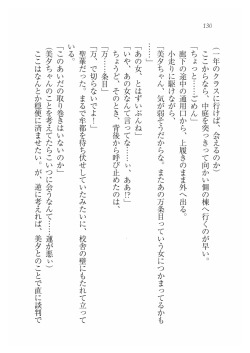 130
(一年のクラスに行けば、会えるのか)
ここからなら、中庭を突っきって向かい側の棟へ行くのが早い。
「ちょっと……ごめん」
廊下の途中の通用口から、上履きのまま外へ出る。
小走りに駆けながら、
(美夕ちゃん、気が弱そうだからな、またあの万条目っていう女につかまってるかも
……)
あの女、とはずいぶんね」
「いや、あの女なんて言ってな……い、ああ!?」
ちょうど、そのとき、背後から呼び止めたのは、
「万……条目」
「万、で切らないでよ!」
聖華だった。まるで牟都を待ち伏せしていたみたいに、校舎の壁にもたれて立って
いる。
「このあいだの取り巻きはいないのか」
(美夕ちゃんのことを考えてたらこいつに会うなんて……運が悪い)
ここはなんとか穏便に済ませたい。が、逆に考えれば、美夕とのことで直に談判で